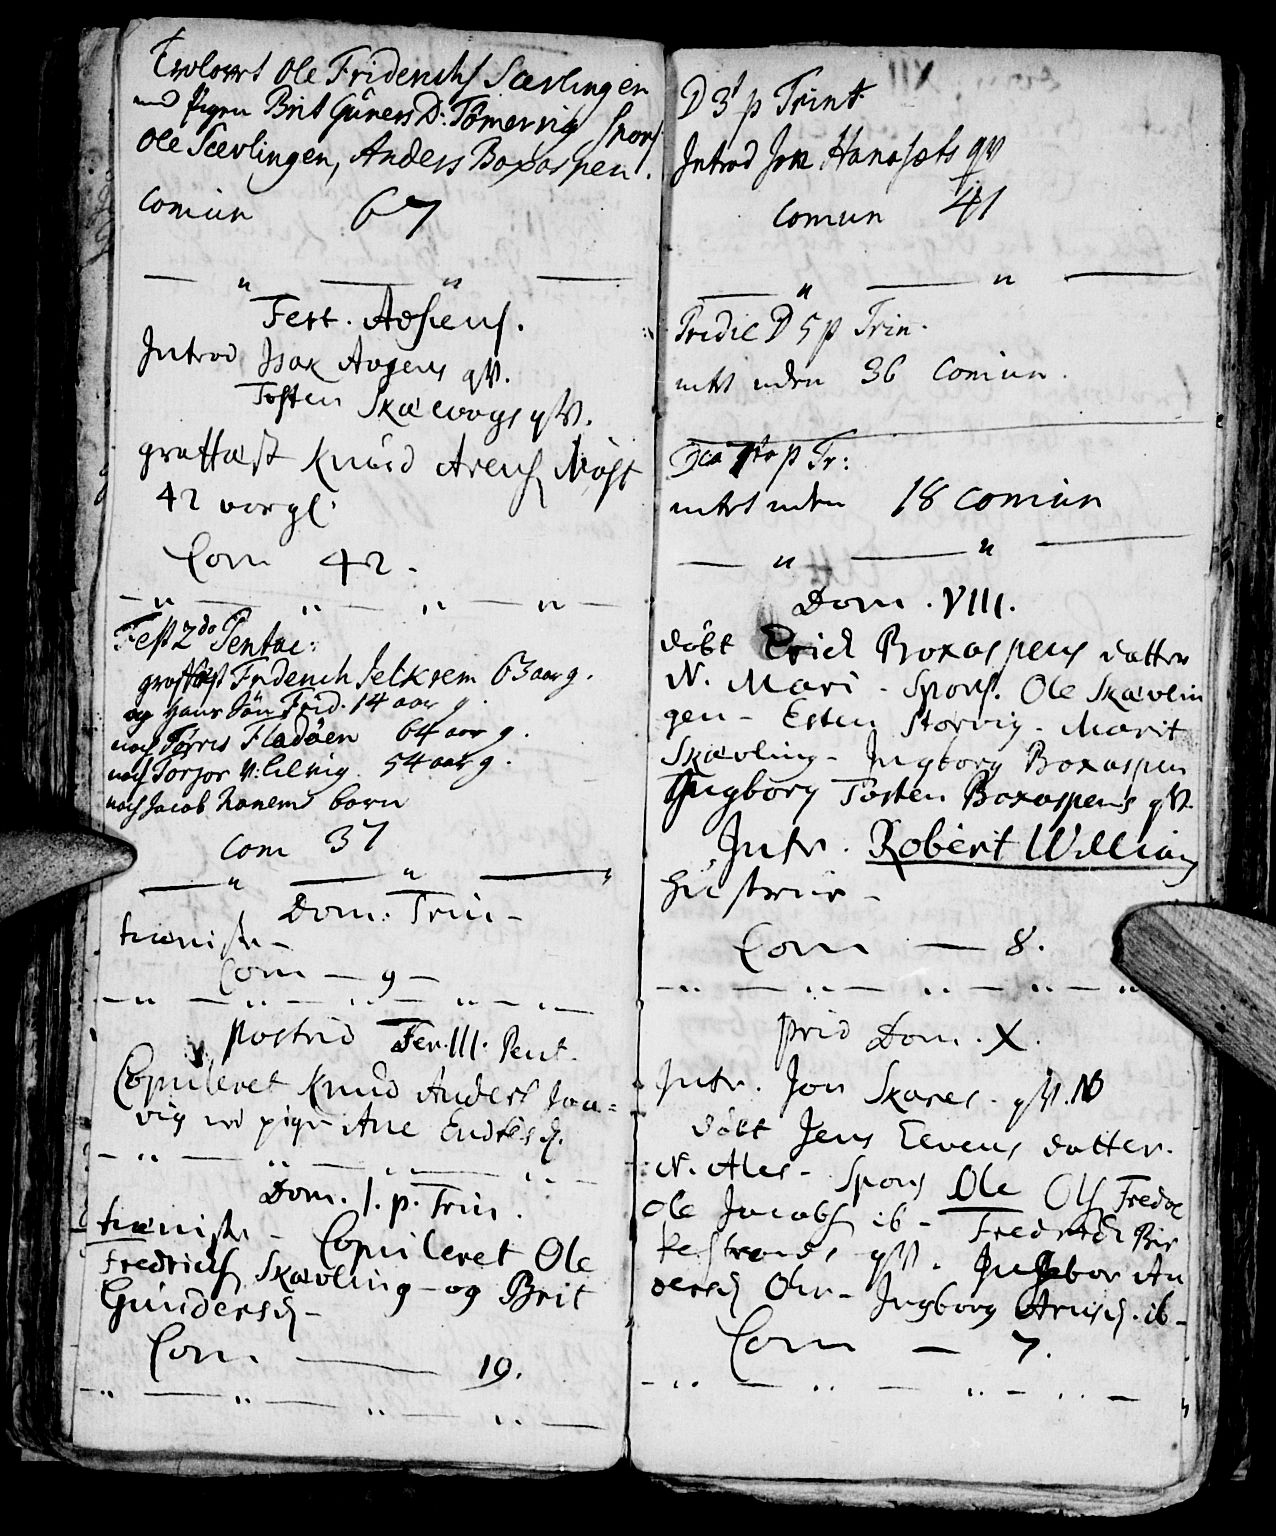 Trolovet Ole Fridenchs Sævlingen
med Pigen Brit Guners D: Tømervig Spons
Ole Sævlingen, Anders Boxaspen.
comun 67
Fest. Ascens.
Introd Isax Avgens qv.
Tosten Skæevogs qv.
graffæst Knud Arens Møst
42 vorgl.
Com 42.
Fest 2do Pentec:
graffæst Fridench Selkrem 63 aar g.
og hans Sön Frid. 14 aar g.
noch Tørris Fladöen 64 aar g.
noch Torfor 54 aar g.
noch Jacob Hanems born
com 37
Dom. Trin
tieniste
Com 9
postrid Fer. III. Pent.
Copuleret Knud Anders
vig md pige Ane Endres d.
Dom. 1. p. Trin.
tieniste - Copuleret Ole
Fredrichs Skævling - og Brit
Gunders d
Com 19.
D 3 p Trint.
Introd Jon Hanasæts qv
comun 41
Pridie D 5 p Trin.
intet uden 36 Comun.
p Tr:
intet uden 18 comun
Dom. VIII.
döbt Erich Boxaspens datter
N. Mari. Spons. Ole Skævlin
gen - Esten Storvig. Marit
Skævling - Ingborg Boxaspen
Ingborg Tosten Boxaspens qv.
Intr. Robert William
Hustrue
Com 8.
prid Dom. X.
Intr. Jon Skares qv.
döbt Jens Eevens datter.
N. Ales - Spons Ole Ols Fredøe
Ole Jacobs ib - Fredrich Bir
kestrands qv. Ingebor An
ders d Ohr - Ingborg Arns d. ib -
Com 7.